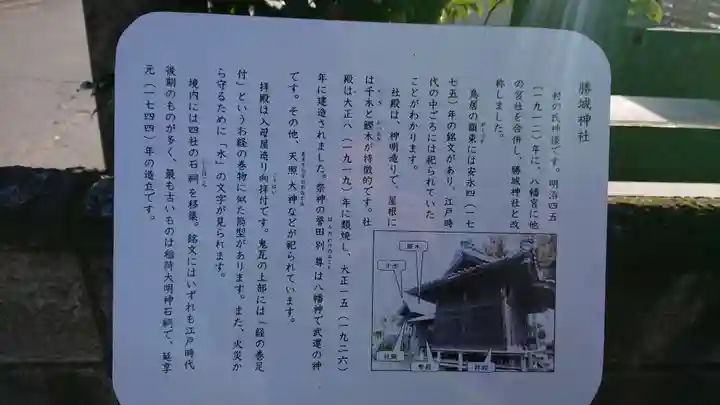 勝城神社
村の氏神様です。明治四五
(一九一二)年に、八幡宮に他
の宮社を合併し、勝城神社と改
称しました。
鳥居の額束には安永四(一七
七五)年の銘文があり、江戸時
代の中ごろには祀られていた
ことがわかります。
社殿は、神明造りで、屋根に
は千木と鰹木が特徴的です。社
殿は大正八(一九一九)年に類焼し、大正一五(一九二六)
年に建造されました。祭神の誉田別尊は八幡神で武運の神
です。その他、天照大神などが祀られています。
拝殿は入母屋造り向拝付です。鬼瓦の上部には「経の巻足
付」というお経の巻物に似た筒型があります。また、火災か
ら守るために「水」の文字が見られます。
境内には四社の石祠を移築。銘文にはいずれも江戸時代
後期のものが多く、最も古いものは稲荷大明神石祠で、延享
元(一七四四)年の造立です。
鰹木
千木
社殿
幣殿
拝殿